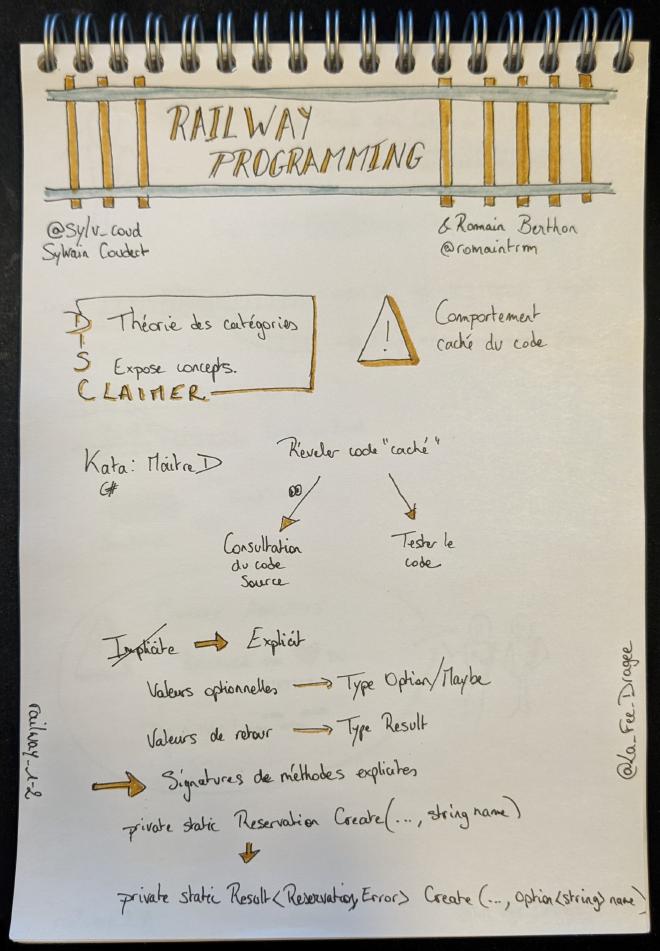 RAILWAY
PROGRAMMING
@Sylv_coud
Sylvain Coudert
& Romain Berthon
@romaintrm
DISCLAIMER
Théorie des catégories
Expose concepts.
!
Comportement
caché du code
Kata: Maître D
C#
Réveler code "caché"
Consultation
du code
Source
Tester le
code
Implicite → Explicit
Valeurs optionnelles → Type Option/Maybe
Valeurs de retour → Type Result
→ Signatures de méthodes explicites
private static Reservation Create(..., string name)
private static Result<Reservation, Error> Create (..., Option<string> name)
railway_1-2
@La_Fee_Dragee